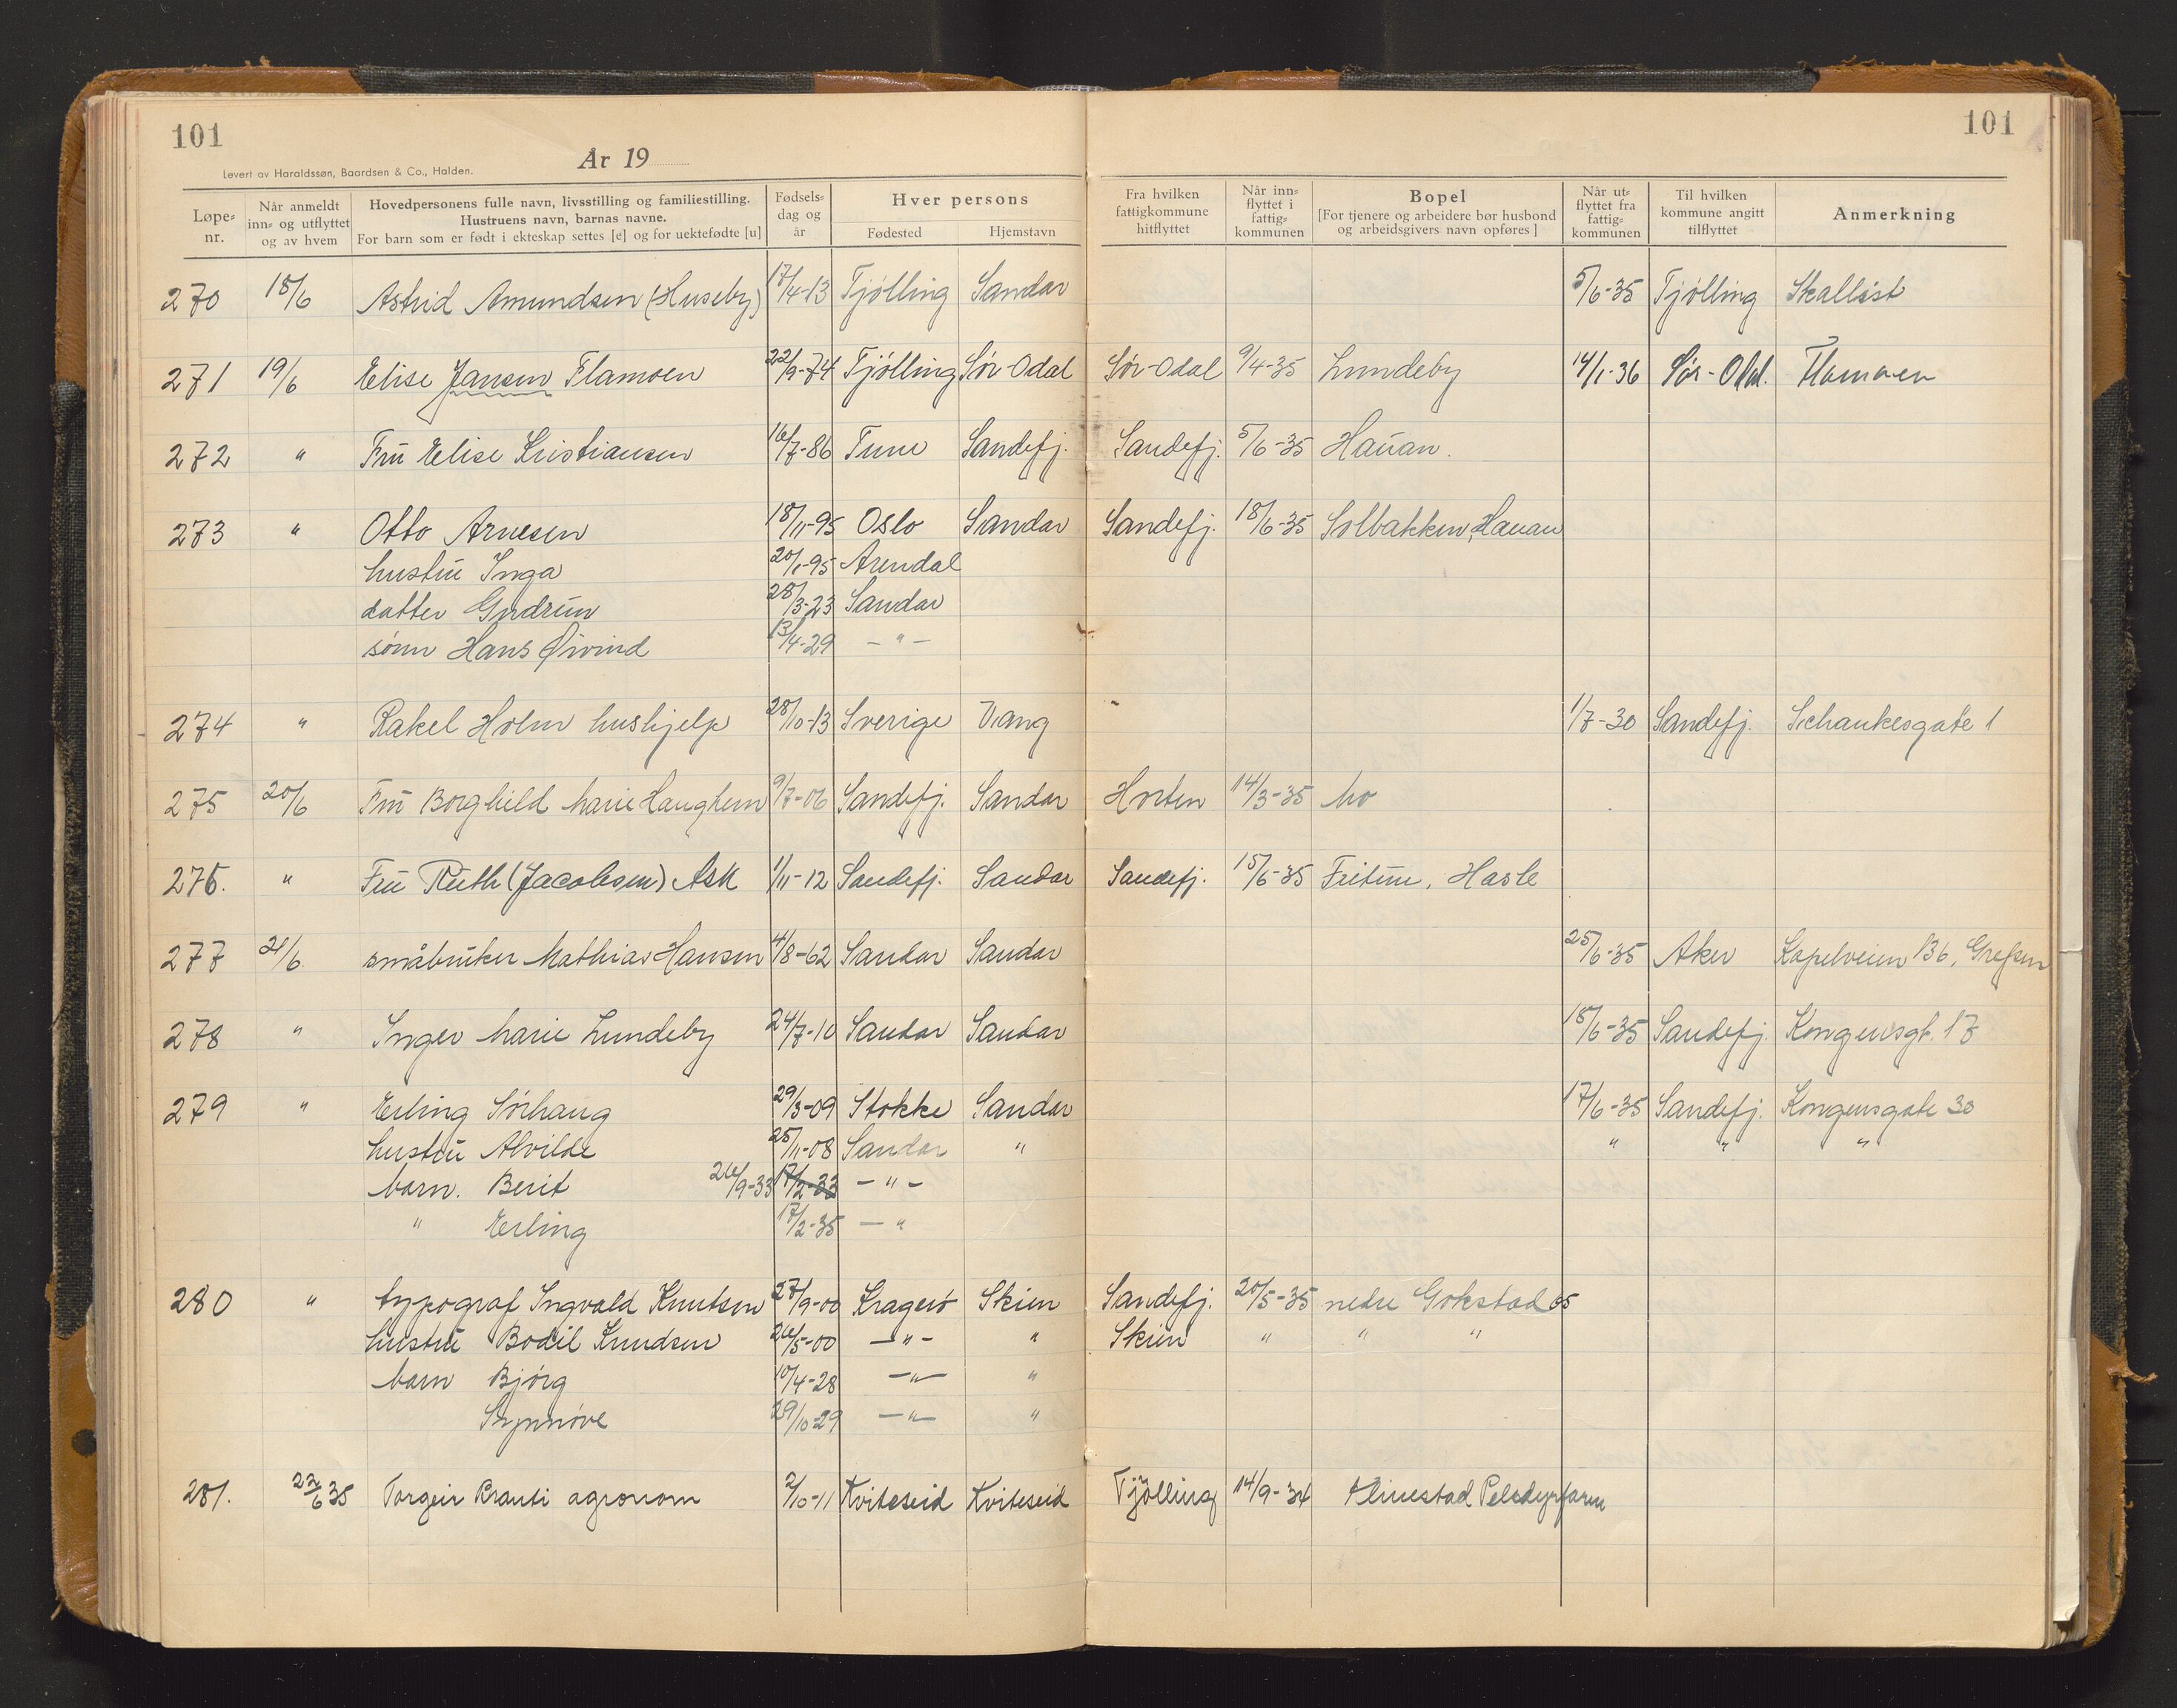 101
101
År 19
Levert av Haraldssøn, Baardsen & Co., Halden.
Løpe-nr. Når anmeldt inn- og utflyttet og av hvem Hovedpersonens fulle navn, livsstilling og familiestilling. Hustruens navn, barnas navne. For barn som er født i ekteskap settes [e] og for uektefødte [u] Fødsels-dag og år Hver persons Fødested Hjemstavn Fra hvilken fattigkommune hitflyttet Når inn-flyttet i fattig-kommunen Bopel [For tjenere og arbeidere bør husbond og arbeidsgivers navn opføres] Når ut-flyttet fra fattig-kommunen Til hvilken kommune angitt tilflyttet Anmerkning
270 18/6 Astrid Amundsen (Huseby) 17/4-13 Tjølling Sandar 5/6-35 Tjølling Skalléist
271 19/6 Elise Jansen Flamoen 22/9-74 Tjølling Sør-Odal Sør-Odal 9/4-35 Lundeby 14/1-36 Sør-Odal. Flamoen
272 " Fru Elise Kristiansen 16/7-86 Tune Sandefj. Sandefj. 5/6-35 Hauan.
273 " Otto Arnesen 18/11-95 Oslo Sandar Sandefj. 18/6-35 Solbakken, Hauan
hustru Inga 20/1-95 Arendal
datter Gudrun 28/3-23 Sandar
sønn Hans Øivind 13/4-29 - " -
274 " Rakel Holm hushjelp 28/10-13 Sverige Vang 1/7-30 Sandefj. Schankesgate 1
275 20/6 Fru Borghild Marie Haughem 9/7-06 Sandefj. Sandar Horten 14/3-35 Mo
276. " Fru Ruth (Jacobsen) Ask 1/11-12 Sandefj. Sandar Sandefj. 15/6-35 Fritun, Hasle
277 21/6 småbruker Mathias Hansen 4/8-62 Sandar Sandar 25/6-35 Aker Kapelveien 136, Grefsen
278 " Inger Marie Lundeby 24/7-10 Sandar Sandar 15/6-35 Sandefj. Kongensgt. 17
279 " Erling Sørhaug 29/3-09 Stokke Sandar 17/6-35 Sandefj. Kongensgate 30
hustru Alvilde 25/11-08 Sandar " " " "
barn. Berit 26/9-33 17/2-33 - " -
" Erling 17/2-35 - "
280 " typograf Ingvald Knutsen 27/9-00 Kragerø Skien Sandefj. 20/5-35 nedre Gokstad 65
hustru Bodil Knudsen 26/5-00 - " - " Skien " " "
barn Bjørg 10/4-28 - " - "
Synnøve 29/10-29 - " - "
281. 22/6 35 Torgeir Brauti agronom 2/10-11 Kviteseid Kviteseid Tjølling 14/9-34 Klinestad Pelsdyrfarm